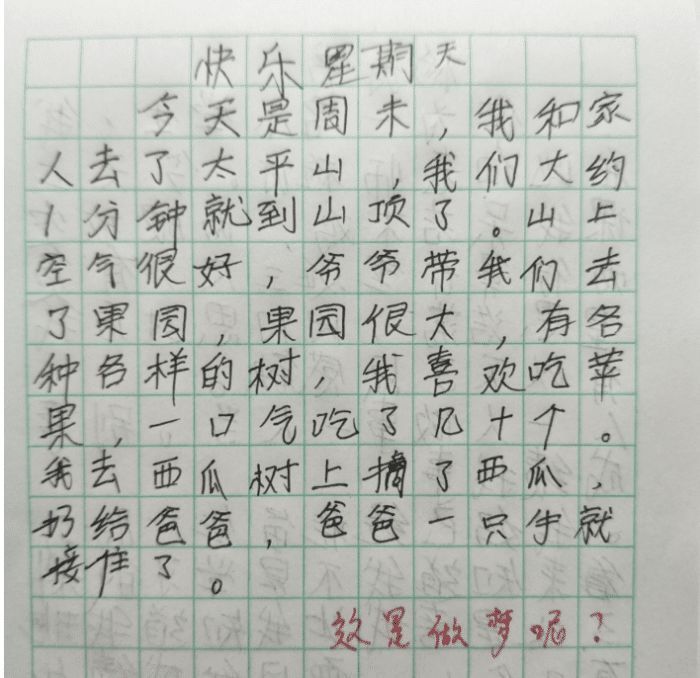 快乐星期天
今天是周末,我和家
人去了太平山,我们大约
1分钟就到山顶了。山上
空气很好,爷爷带我们去
了果园,果园很大,有各
种各样的树,我喜欢吃苹
果,一口气吃了几十个。
我去西瓜树上摘了西瓜,
扔给爸爸,爸爸一只手就
接住了。
这是做梦呢?